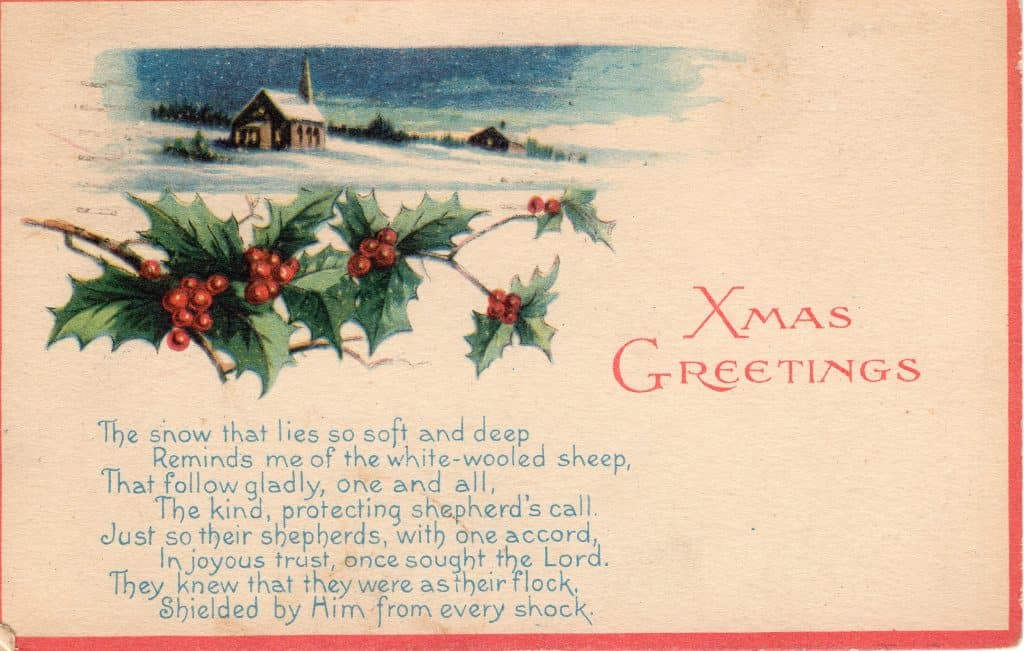 Xmas
Greetings
The snow that lies so soft and deep
Reminds me of the white-wooled sheep,
That follow gladly, one and all,
The kind, protecting shepherd's call.
Just so their shepherds, with one accord,
In joyous trust, once sought the Lord.
They knew that they were as their flock,
Shielded by Him from every shock.